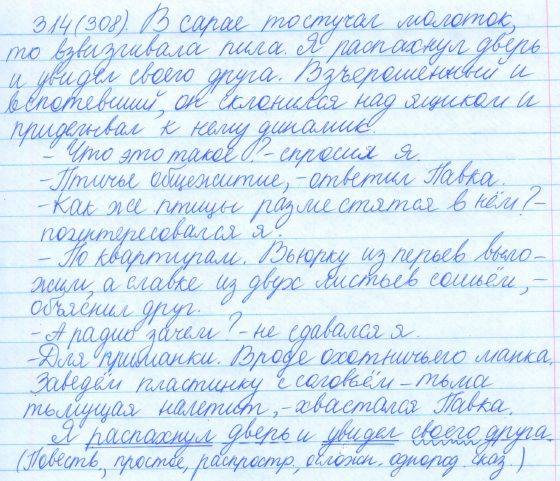 314(308). В сарае то стучал молоток,
то взвизгивала пила. Я распахнул дверь
и увидел своего друга. Взъерошенный и
вспотевший, он склонился над ящиком и
приделывал к нему динамик.
- Что это такое? - спросил я.
- Птичье общежитие, - ответил Павка.
- Как же птицы разместятся в нём? -
поинтересовался я.
- По квартирам. Вьюрку из перьев выло-
жили, а славке из двух листьев сошьём, -
объяснил друг.
- А радио зачем? - не сдавался я.
- Для приманки. Вроде охотничьего манка.
Заведём пластинку с соловьём - тьма
тьмущая налетит, - хвастался Павка.
Я распахнул дверь и увидел своего друга.
(Повеств., простое, распростр., осложн. однород. сказ.)